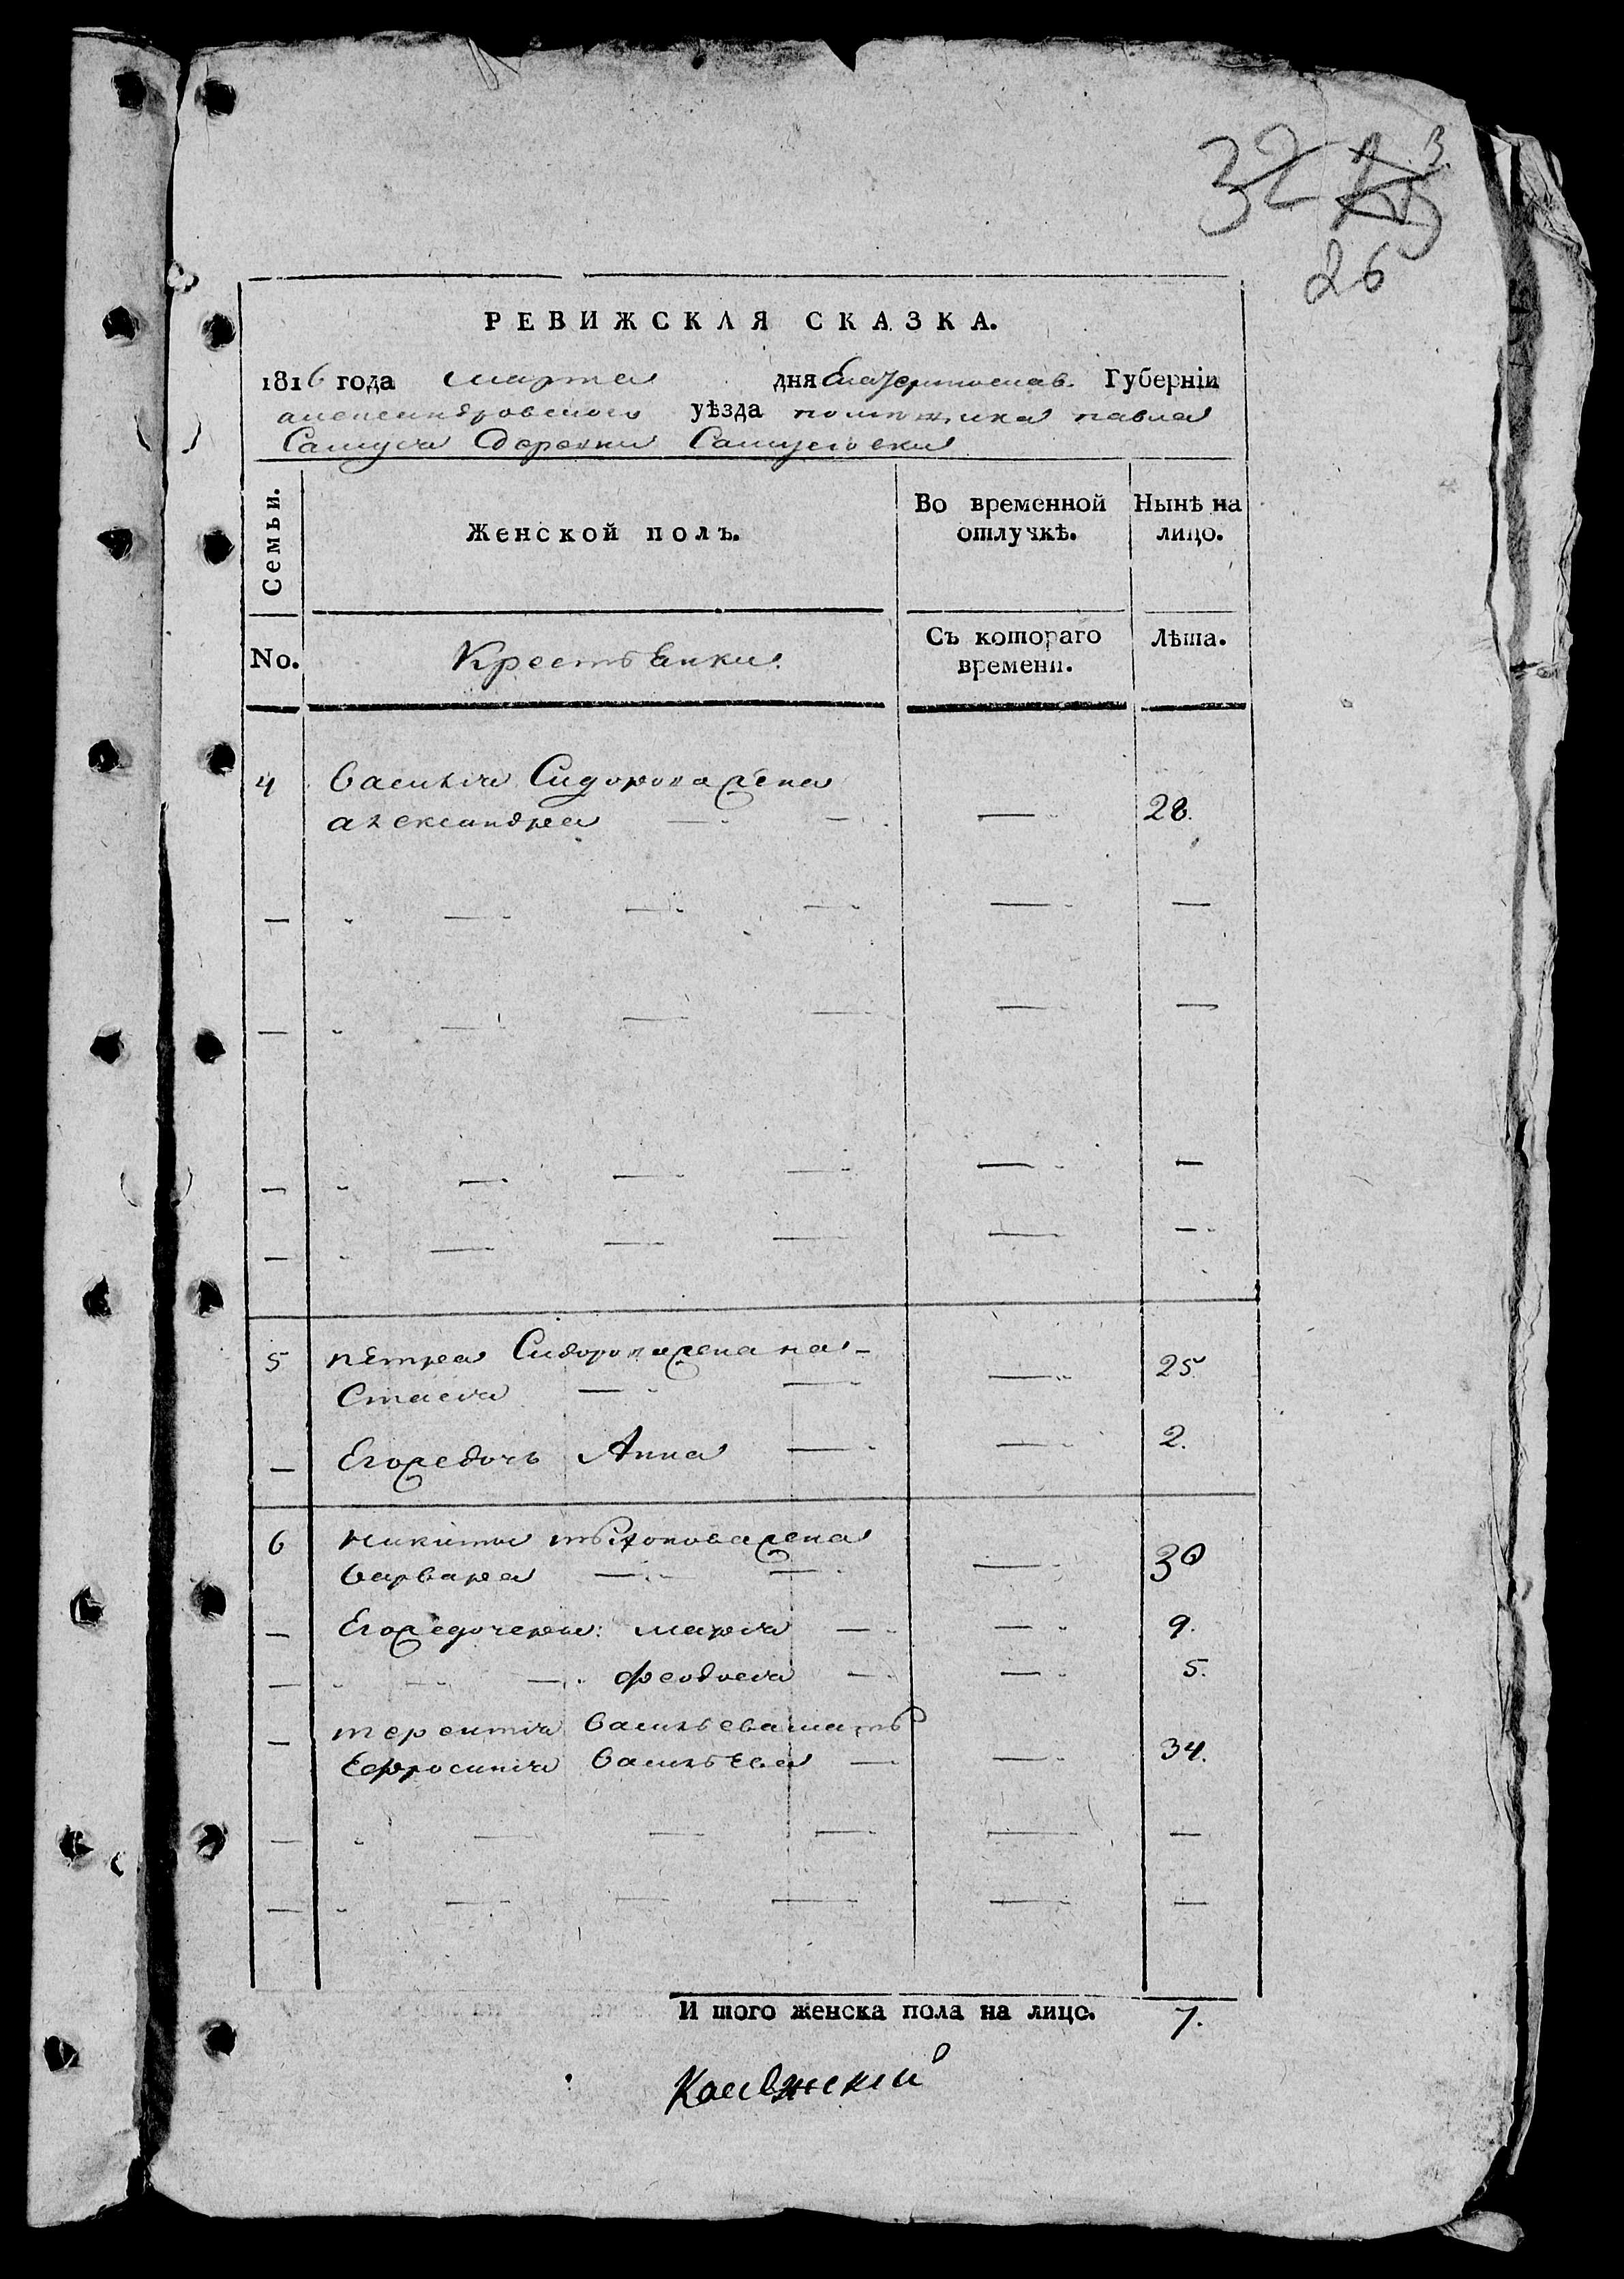 32
26
РЕВИЖСКАЯ СКАЗКА.
1816 года марта дня Екатеринослав. Губерніи
александровского уѣзда помещика павла
Самуся деревни Самусговки
Семьи.
Женской полъ.
Во временной отлучкѣ.
Нынѣ на лицо.
No.
Крестьянки
Съ котораго времени.
Лѣта.
4 Василія Сидорова жена
александра — — — 28.
— — — — — —
— — — — — —
— — — — — —
— — — — — —
5 петра Сидорова жена на-
стасія — — — 25
— Егоже дочь Анна — — 2.
6 никиты тихонова жена
варвара — — — 30
— Егоже дочери: марія — — 9.
— — — феодосія — — 5.
— терентія васильева мать
Ефросинія васильева — — 34.
— — — — — —
— — — — — —
И того женска пола на лицо. 7.